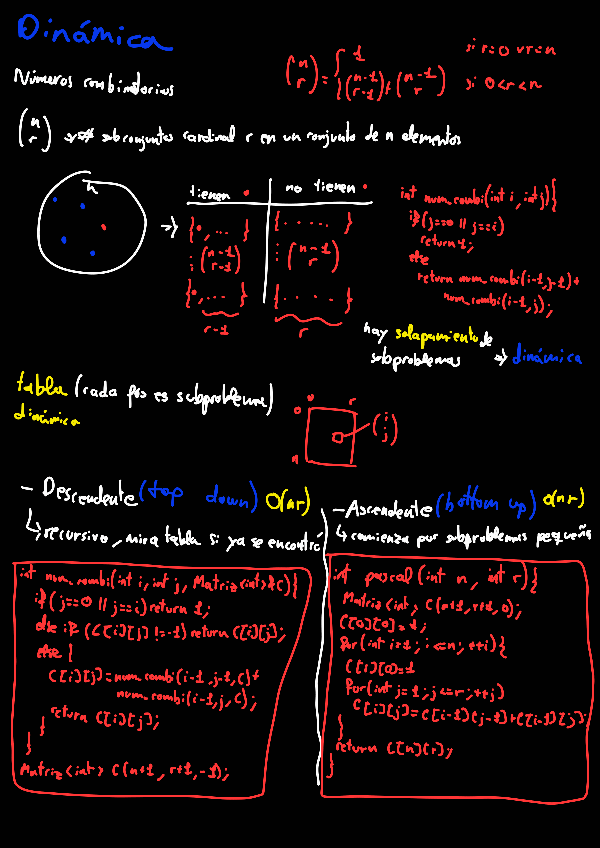 Dinámica
Números combinatorios
(n r) = { 1 si r=0 v r=n
(n-1 r-1) + (n-1 r) si 0<r<n
(n r) → # subconjuntos cardinal r en un conjunto de n elementos
n
tienen • | no tienen •
{•, ... } | {. . . . . }
⋮ (n-1 r-1) | ⋮ (n-1 r)
{•, ... } | {. . . . . }
r-1 | r
int num_combi(int i, int j){
if(j==0 || j==i)
return 1;
else
return num_combi(i-1,j-1)+
num_combi(i-1,j);
hay solapamiento de
subproblemas → dinámica
tabla (cada pos es subproblema)
dinámica
0 0 r
n
(i j)
- Descendente (top down) O(nr)
↳ recursivo, mira tabla si ya se encontró
int num_combi(int i, int j, Matriz<int>&C){
if(j==0 || j==i) return 1;
else if (C[i][j] !=-1) return C[i][j];
else {
C[i][j]=num_combi(i-1,j-1,C)+
num_combi(i-1,j,C);
}
return C[i][j];
}
Matriz<int> C(n+1, r+1, -1);
- Ascendente (bottom up) O(nr)
↳ comienza por subproblemas pequeños
int pascal (int n, int r){
Matriz<int> C(n+1, r+1, 0);
C[0][0]=1;
for(int i=1; i<=n; ++i){
C[i][0]=1
for(int j=1; j<=r; ++j)
C[i][j]=C[i-1][j-1]+C[i-1][j];
}
return C[n][r];
}